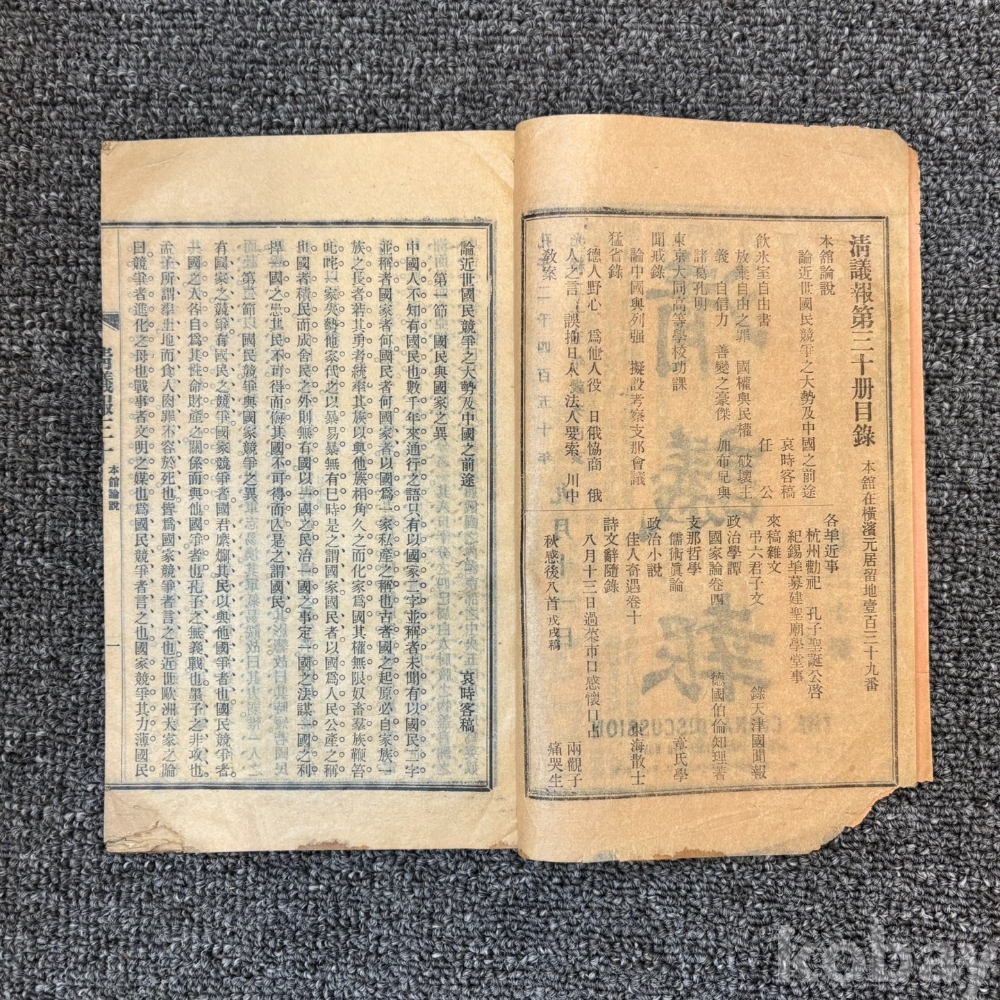 清議報第三十册目錄
本舘在橫濱元居留地壹百三十九番
本舘論說
論近世國民競爭之大勢及中國之前途
哀時客稿
飲氷室自由書
任公
放棄自由之罪 國權與民權 破壞主
義 自信力 善變之豪傑 加布兒與
諸葛孔明
東京大同高等學校功課
聞戒錄
論中國與列强 擬設考察支那會議
猛省錄
德人野心 爲他人役 日俄協商 俄
人之言 誤拘日人 法人要索 川中
敎案
各埠近事
杭州勸祀 孔子聖誕公啓
紀錫埠募建聖廟學堂事
來稿雜文
弔六君子文 錄天津國聞報
政治學譚
國家論卷四 德國伯倫知理著
支那哲學
儒術眞論 章氏學
政治小說
佳人奇遇卷十 海散士
詩文辭隨錄
八月十三日過菜市口感懷口占 兩觀子
秋感後八首戊戌稿 痛哭生
論近世國民競爭之大勢及中國之前途
哀時客稿
第一節 國民與國家之異
中國人不知有國民也數千年來通行之語只有以國家二字並稱者未聞有以國民二字
並稱者國家者何國民者何國家者以國爲一家私產之稱也古者國之起原必自家族一
族之長者若其勇者統率其族以與他族相角久之而化家爲國其權無限奴畜羣族鞭笞
叱咤一家失勢他家代之以暴易暴無有已時是之謂國家國民者以國爲人民公產之稱
也國者積民而成舍民之外則無有國以一國之民治一國之事定一國之法謀一國之利
捍一國之患其民不可得而侮其國不可得而亡是之謂國民
第二節 以國民競爭與國家競爭之異
有國家之競爭有國民之競爭國家競爭者國君糜爛其民以與他國爭者也國民競爭者
一國之人各自爲其性命財產之關係而與他國爭者也孔子之無義戰也墨子之非攻也
孟子所謂率土地而食人肉罪不容於死也皆爲國家競爭者言之也近世歐洲大家之論
曰競爭者進化之母也戰事者文明之媒也爲國民競爭者言之也國家競爭其力薄國民
本舘論說
一
kobay